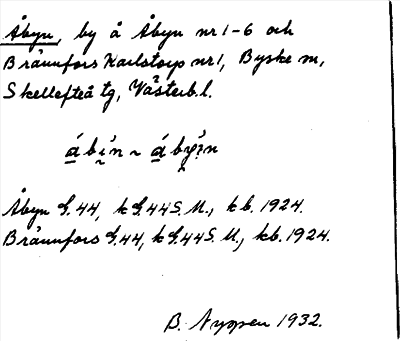 Åbyn, by å Åbyn nr 1-6 och
Brännfors Karlstorp nr 1, Byske sn,
Skellefteå tg, Västerb. l.
Åbyn G.44, k G.44 S. M., kb. 1924.
Brännfors G.44, k G.44 S. M., kb. 1924.
B. Nyppen 1932.